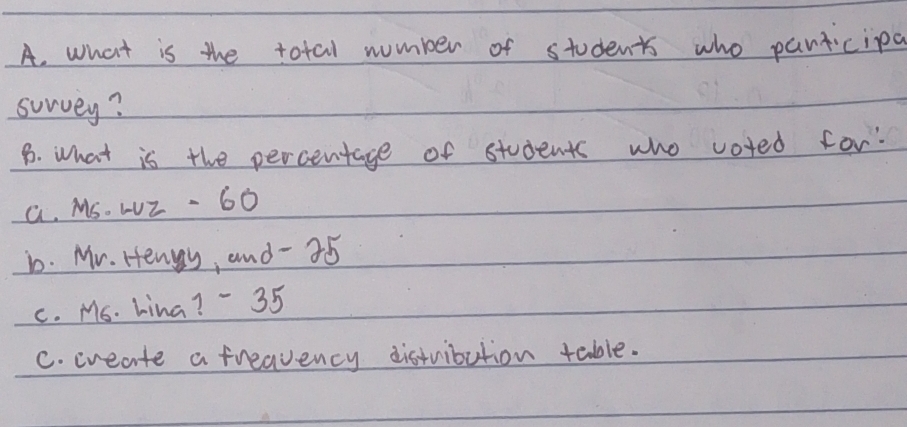 A. What is the total number of students who participa
survey?
B. What is the percentage of students who voted for:
a. Ms. Luz - 60
b. Mr. Henry, and - 25
c. Ms. Lina? - 35
C. create a frequency distribution table.